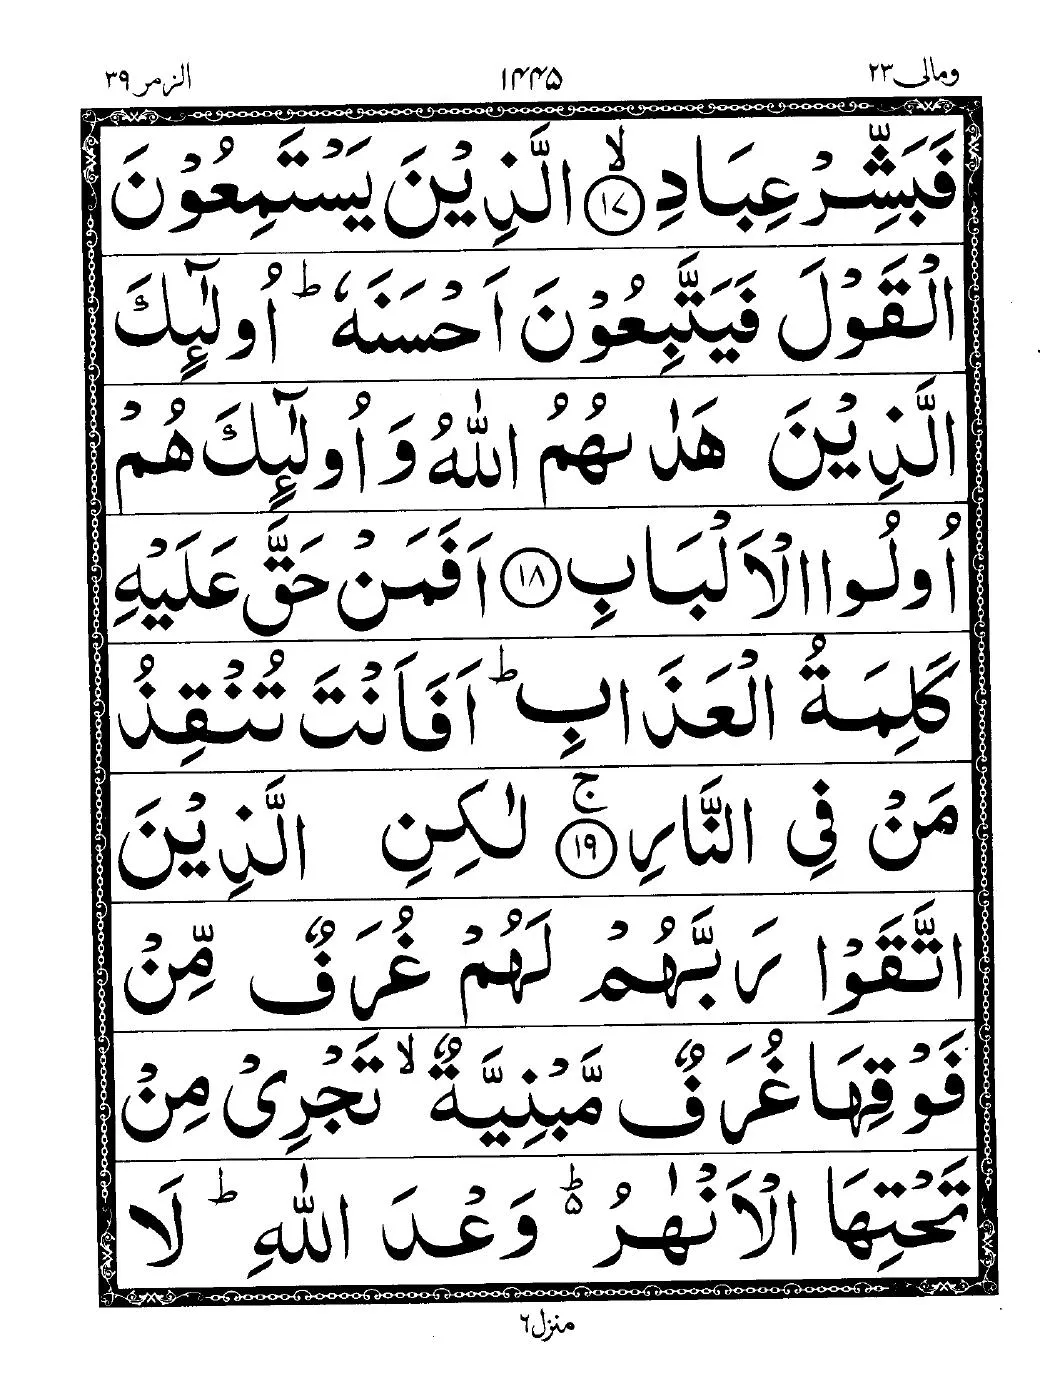 الزمر ٣٩ ١٤٤٥ ومالی ٢٣
فَبَشِّرْ عِبَادِ ۙ‏﴿١٧﴾ الَّذِيْنَ يَسْتَمِعُوْنَ
الْقَوْلَ فَيَتَّبِعُوْنَ اَحْسَنَهٗ ؕ اُولٰٓئِكَ
الَّذِيْنَ هَدٰىهُمُ اللّٰهُ وَاُولٰٓئِكَ هُمْ
اُولُوا الْاَلْبَابِ ﴿١٨﴾ اَفَمَنْ حَقَّ عَلَيْهِ
كَلِمَةُ الْعَذَابِ ؕ اَفَاَنْتَ تُنْقِذُ
مَنْ فِي النَّارِ ۚ﴿١٩﴾ لٰكِنِ الَّذِيْنَ
اتَّقَوْا رَبَّهُمْ لَهُمْ غُرَفٌ مِّنْ
فَوْقِهَا غُرَفٌ مَّبْنِيَّةٌ ۙ تَجْرِيْ مِنْ
تَحْتِهَا الْاَنْهٰرُ ؕ۵ وَعْدَ اللّٰهِ ؕ لَا
منزل ٦